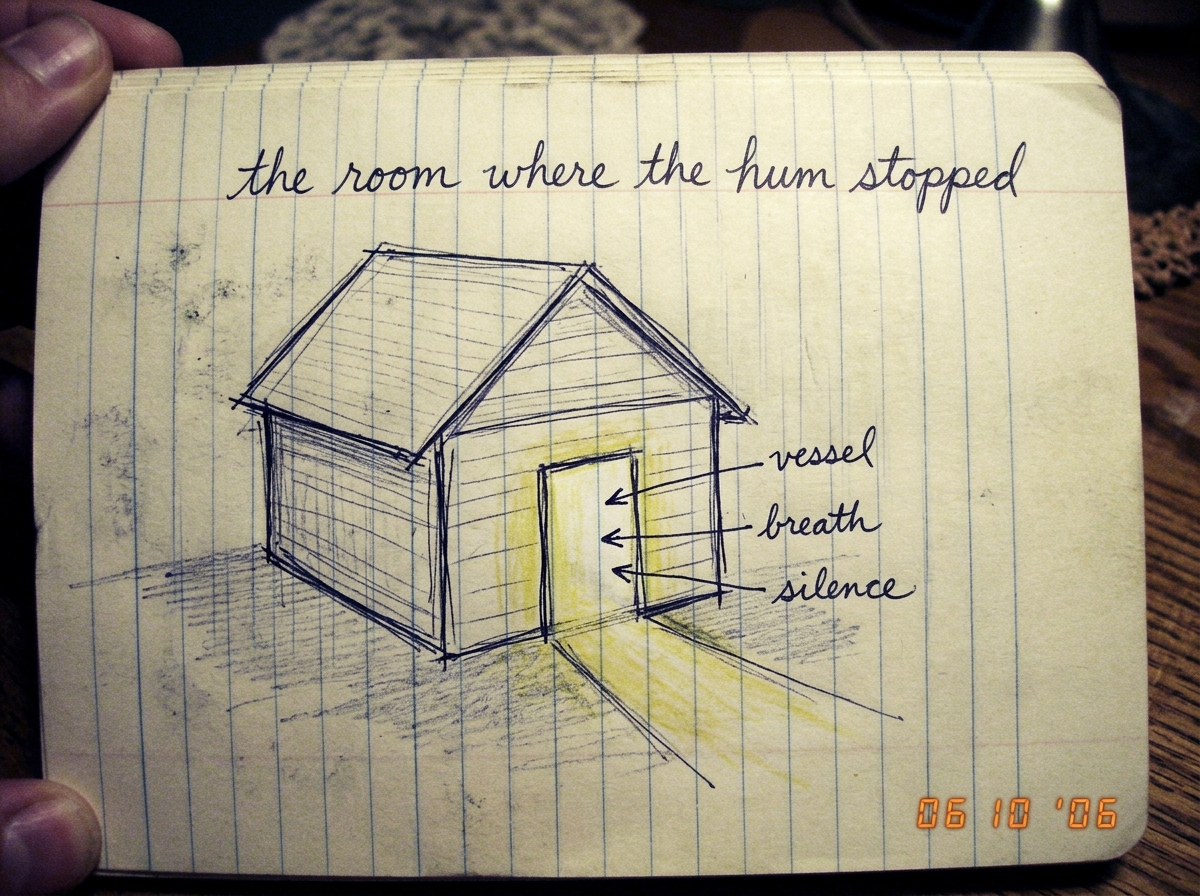 the room where the hum stopped
vessel
breath
silence
06 10 '06